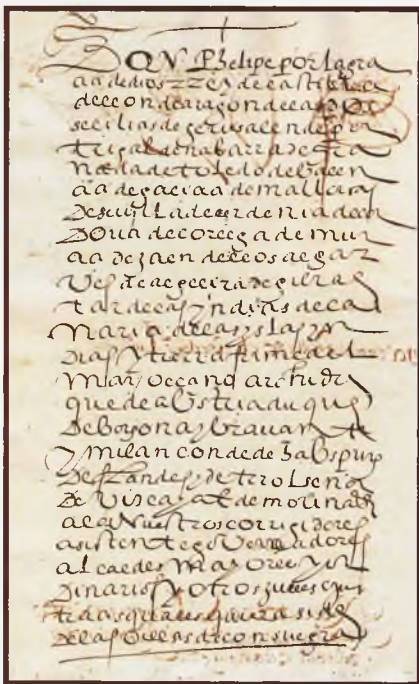 DON Phelipe por la gra
cia de dios rrey de castilla
de leon de aragon de las dos
secilias de gerusalen de por
tugal de nabarra de gra
nada de toledo de balen
cia de galicia de mallorcas
de seuilla de cerdenia de cor
doua de corcega de mur
cia de jaen de los algar
ues de algecira de gibral
tar de las yndias de ca
naria de las yslas yn
dias y tierra firme del
mar oceano archidu
que de austria duque
de borgona y brauante
y milan conde de habspurg
de flandes y de tirol señor
de viscaya et de molina
a los nuestros corrigidores
asistente gouernadores
alcaldes mayores y or
dinarios y otros jueces y jus
ticias qualesquiera si de
de las villas de consuegra